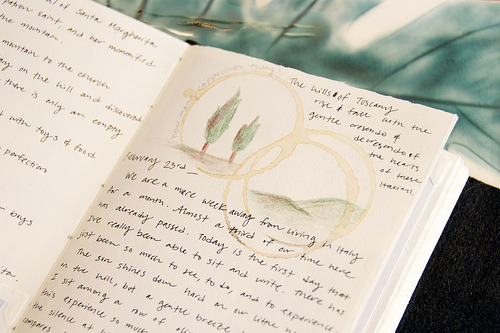 of Santa Margherita
patron saint and her mummified
the mountain.
mountain to the church
on the hill and discovered
there is only an empty
with toys & food
perfection
boys
The hills of Toscany
rise & fall with the
gentle cresendo &
decresendo of
the hearts
of these
Italians.
February 23rd —
We are a mere week away from living in Italy
for a month. Almost a third of our time here
has already passed. Today is the first day that
I've really been able to sit and write. There has
just been so much to see, to do, and to experience.
The sun shines down hard on our little
on the hill, but a gentle breeze
I sit among a row of
this experience so much
the silence at
compares